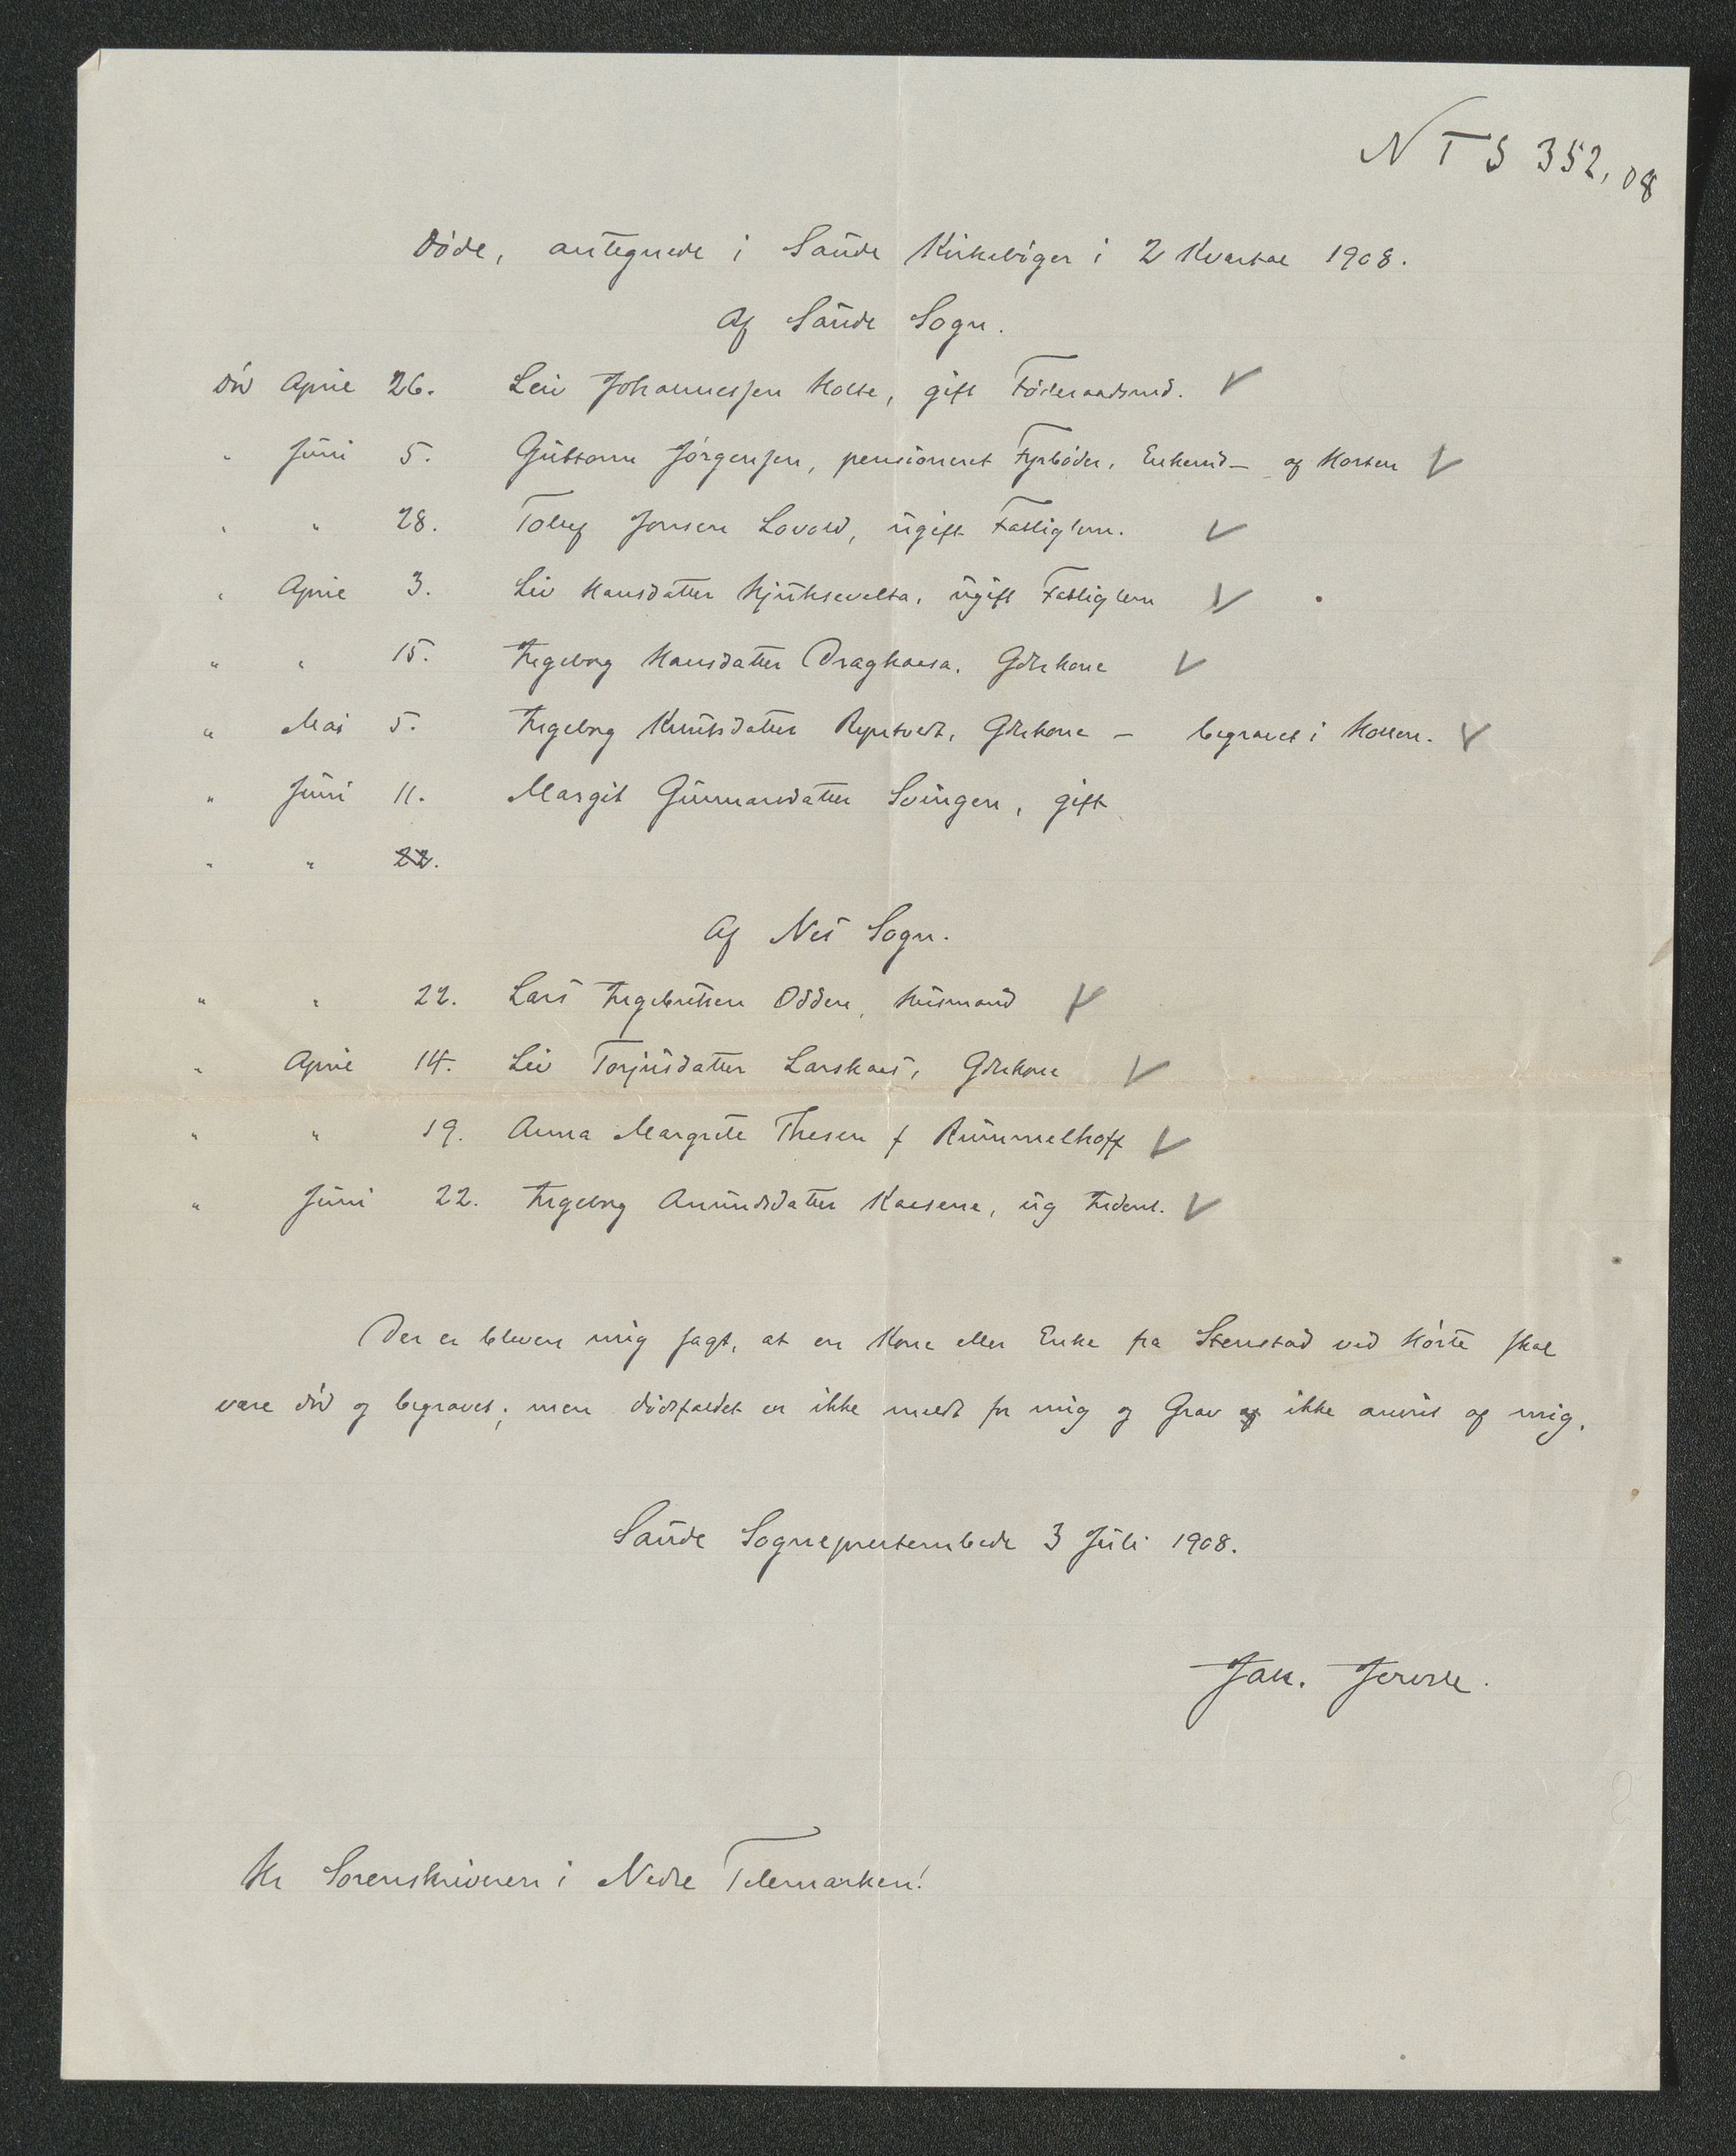 N T S 352, 08
Døde, antegnede i Saude Kirkebøger i 2 Kvartal 1908.
Af Saude Sogn.
Död April 26. Leiv Johannessen Holte, gift Föderaadsmd.
" Juni 5. Guttorm Jörgensen, pensioneret Fyrböder, Enkemd – af Horten
" " 28. Toluf Jonsen Lovald, ugift Fattiglem.
" April 3. Liv Hansdatter Hjuksevelta, ugift Fattiglem
" " 15. Ingeborg Hansdatter Draghaesa. Gdrkone
" Mai 5. Ingeborg Knutsdatter Repetvedt, Gdrkone – begravet i Hollen.
" Juni 11. Margit Gunnarsdatter Svingen, gift
" " 22.
Af Nes Sogn.
" " 22. Lars Ingebretsen Odden, Husmand
" April 14. Liv Torjusdatter Larskaas, Gdrkone
" " 19. Anna Margrete Thesen f Rummelhoff
" Juni 22. Ingeborg Amundsdatter Kaasene, ug Inderst.
Der er bleven mig sagt, at en Kone eller Enke fra Stenstad ved Hörte skal
være död og begravet; men dödsfaldet er ikke meldt for mig og Grav ikke anvist af mig.
Saude Sogneprestembede 3 Juli 1908.
Jak.
Hr Sorenskriveren i Nedre Telemarken!